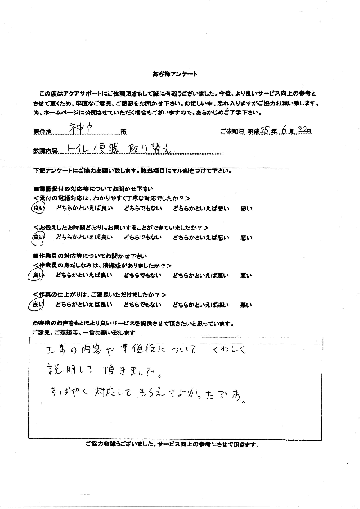 お客様アンケート
この度はアクアサポートにご依頼頂きまして誠に有難うございました。今後、より良いサービス向上の参考と
させて頂くため、率直なご意見、ご感想をお聞かせ下さい。お忙しい中、恐れ入りますがご協力お願い致します。
尚、ホームページに公開させていただく場合もございますので、あらかじめご了承下さい。
神戸 市 ご依頼日 平成25年 6月 22日
依頼内容 トイレ便器 取り替え
下記アンケートにご協力お願い致します。該当項目にマル印をつけて下さい。
■電話受付の対応等についてお聞かせ下さい
<受付の電話対応は、わかりやすく丁寧な対応でしたか?>
良い どちらかといえば良い どちらでもない どちらかといえば悪い 悪い
<お伝えしたお時間どおりにお伺いすることができていましたか?>
良い どちらかといえば良い どちらでもない どちらかといえば悪い 悪い
■作業員の対応等についてお聞かせ下さい
<作業員の身だしなみは、清潔感がありましたか?>
良い どちらかといえば良い どちらでもない どちらかといえば悪い 悪い
<作業の仕上がりは、ご満足いただけましたか?>
良い どちらかといえば良い どちらでもない どちらかといえば悪い 悪い
お客様のお声をもとにより良いサービスを提供させて頂きたいと思っています。
ご意見、ご感想等、一言お願い致します
工事の内容や準備位について くわしく
説明して頂きました。
すばやく 対応して もらえてよかったです。
ご協力有難うございました。サービス向上の参考にさせて頂きます。